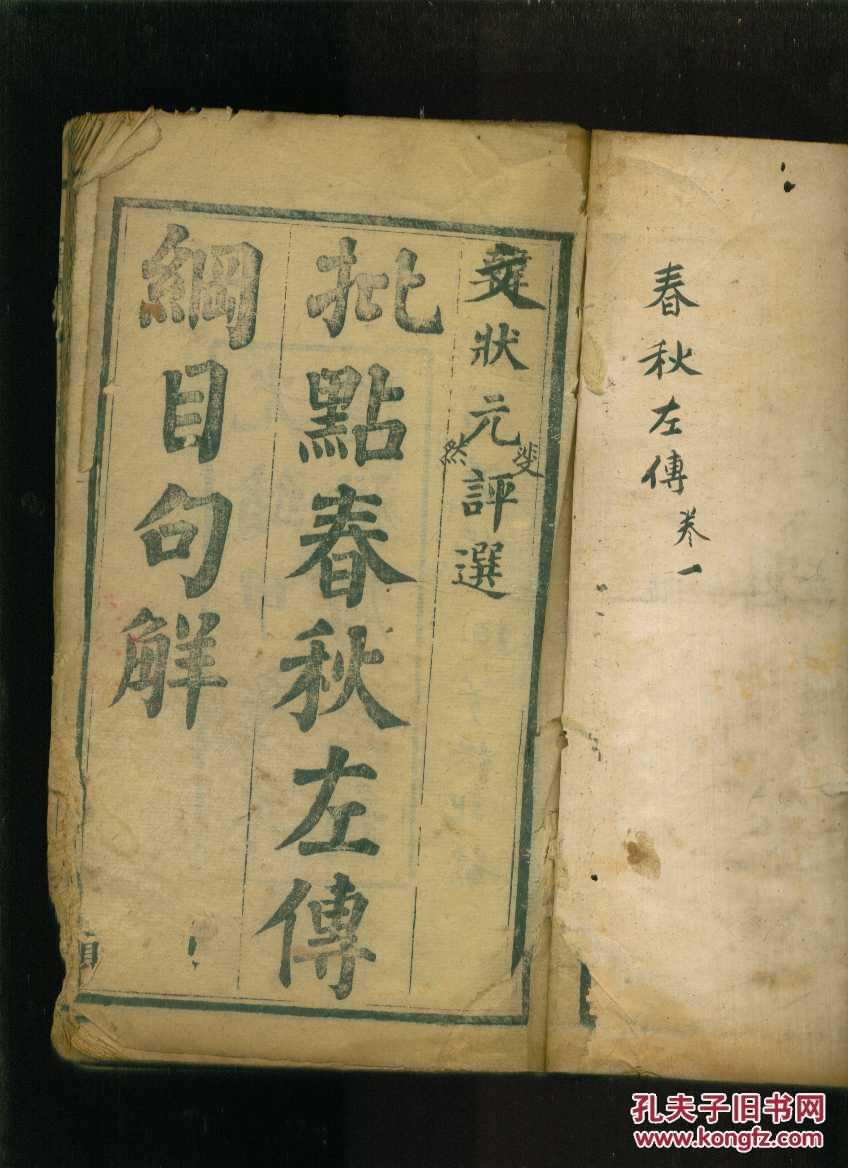 春秋左傳 卷一
狀元評選
斐然
批點春秋左傳
綱目句觧
孔夫子旧书网
www.kongfz.com